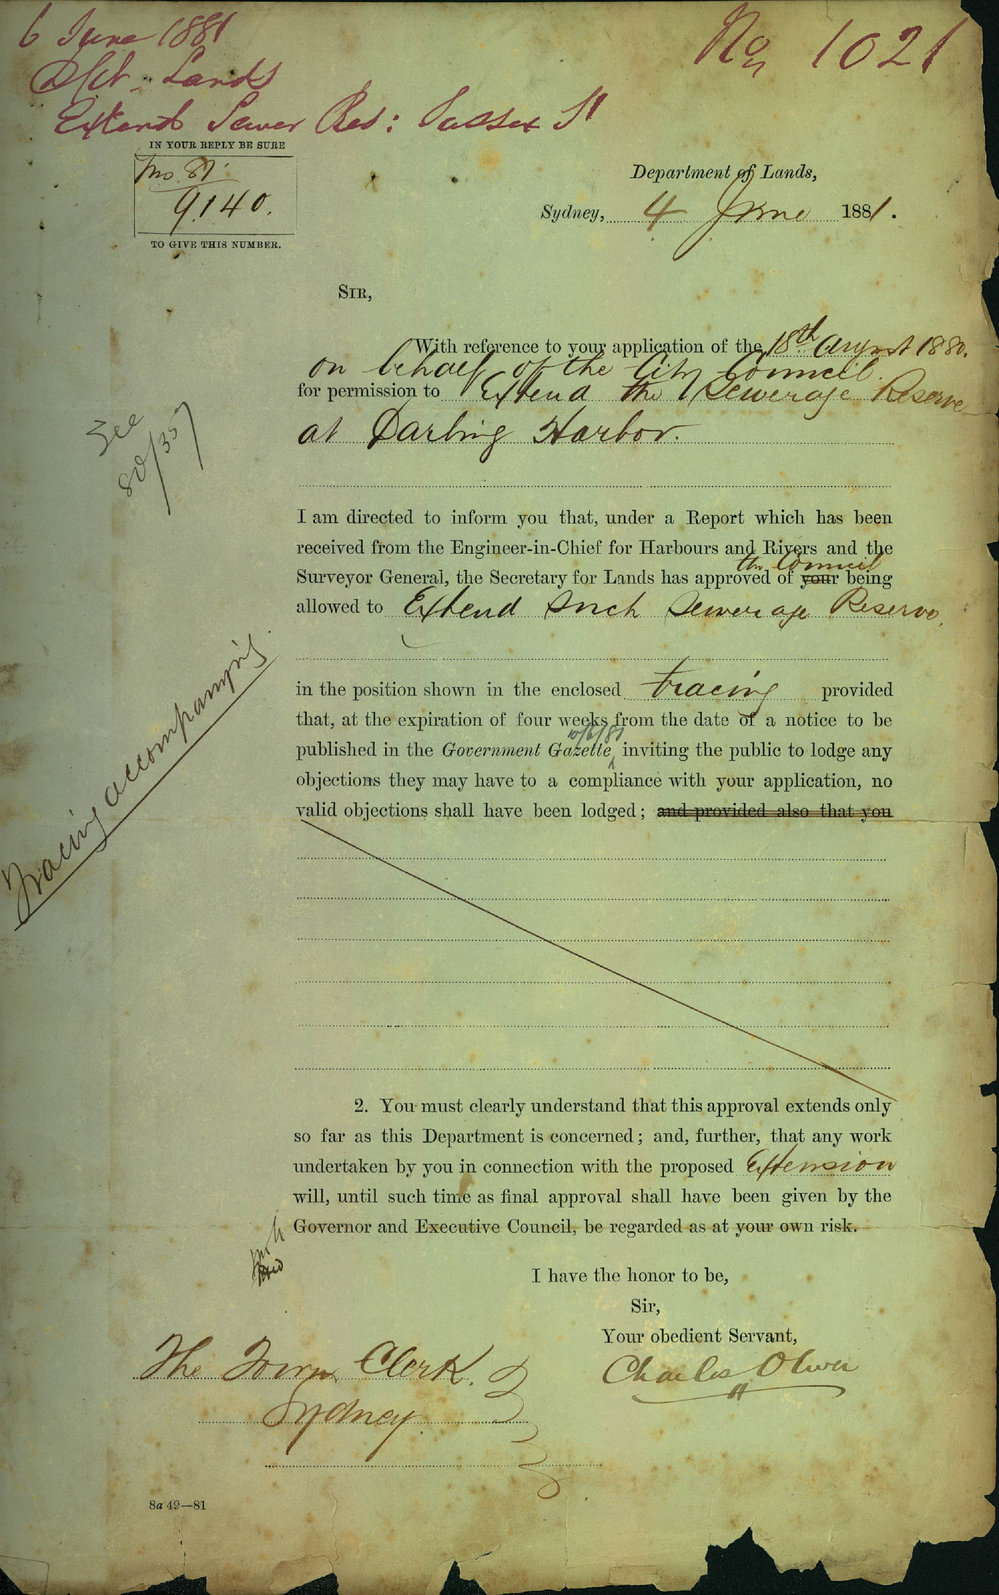 6 June 1881
No 1021
Dept. Lands
Extend Sewer Res: Sussex St
IN YOUR REPLY BE SURE
81
9.140.
TO GIVE THIS NUMBER.
Department of Lands,
Sydney, 4 June 1881.
SIR,
With reference to your application of the 18th August 1880.
on behalf of the City Council
for permission to Extend the Sewerage Reserve
at Darling Harbor.
See
80/357
I am directed to inform you that, under a Report which has been
received from the Engineer-in-Chief for Harbours and Rivers and the
the Council
Surveyor General, the Secretary for Lands has approved of your being
allowed to Extend such Sewerage Reserve.
Tracing accompanying
in the position shown in the enclosed tracing provided
that, at the expiration of four weeks from the date of a notice to be
published in the Government Gazette, inviting the public to lodge any
objections they may have to a compliance with your application, no
valid objections shall have been lodged; and provided also that you
2. You must clearly understand that this approval extends only
so far as this Department is concerned; and, further, that any work
undertaken by you in connection with the proposed Extension
will, until such time as final approval shall have been given by the
Governor and Executive Council, be regarded as at your own risk.
I have the honor to be,
Sir,
Your obedient Servant,
Charles Oliver
The Town Clerk.
Sydney.
8a 49—81